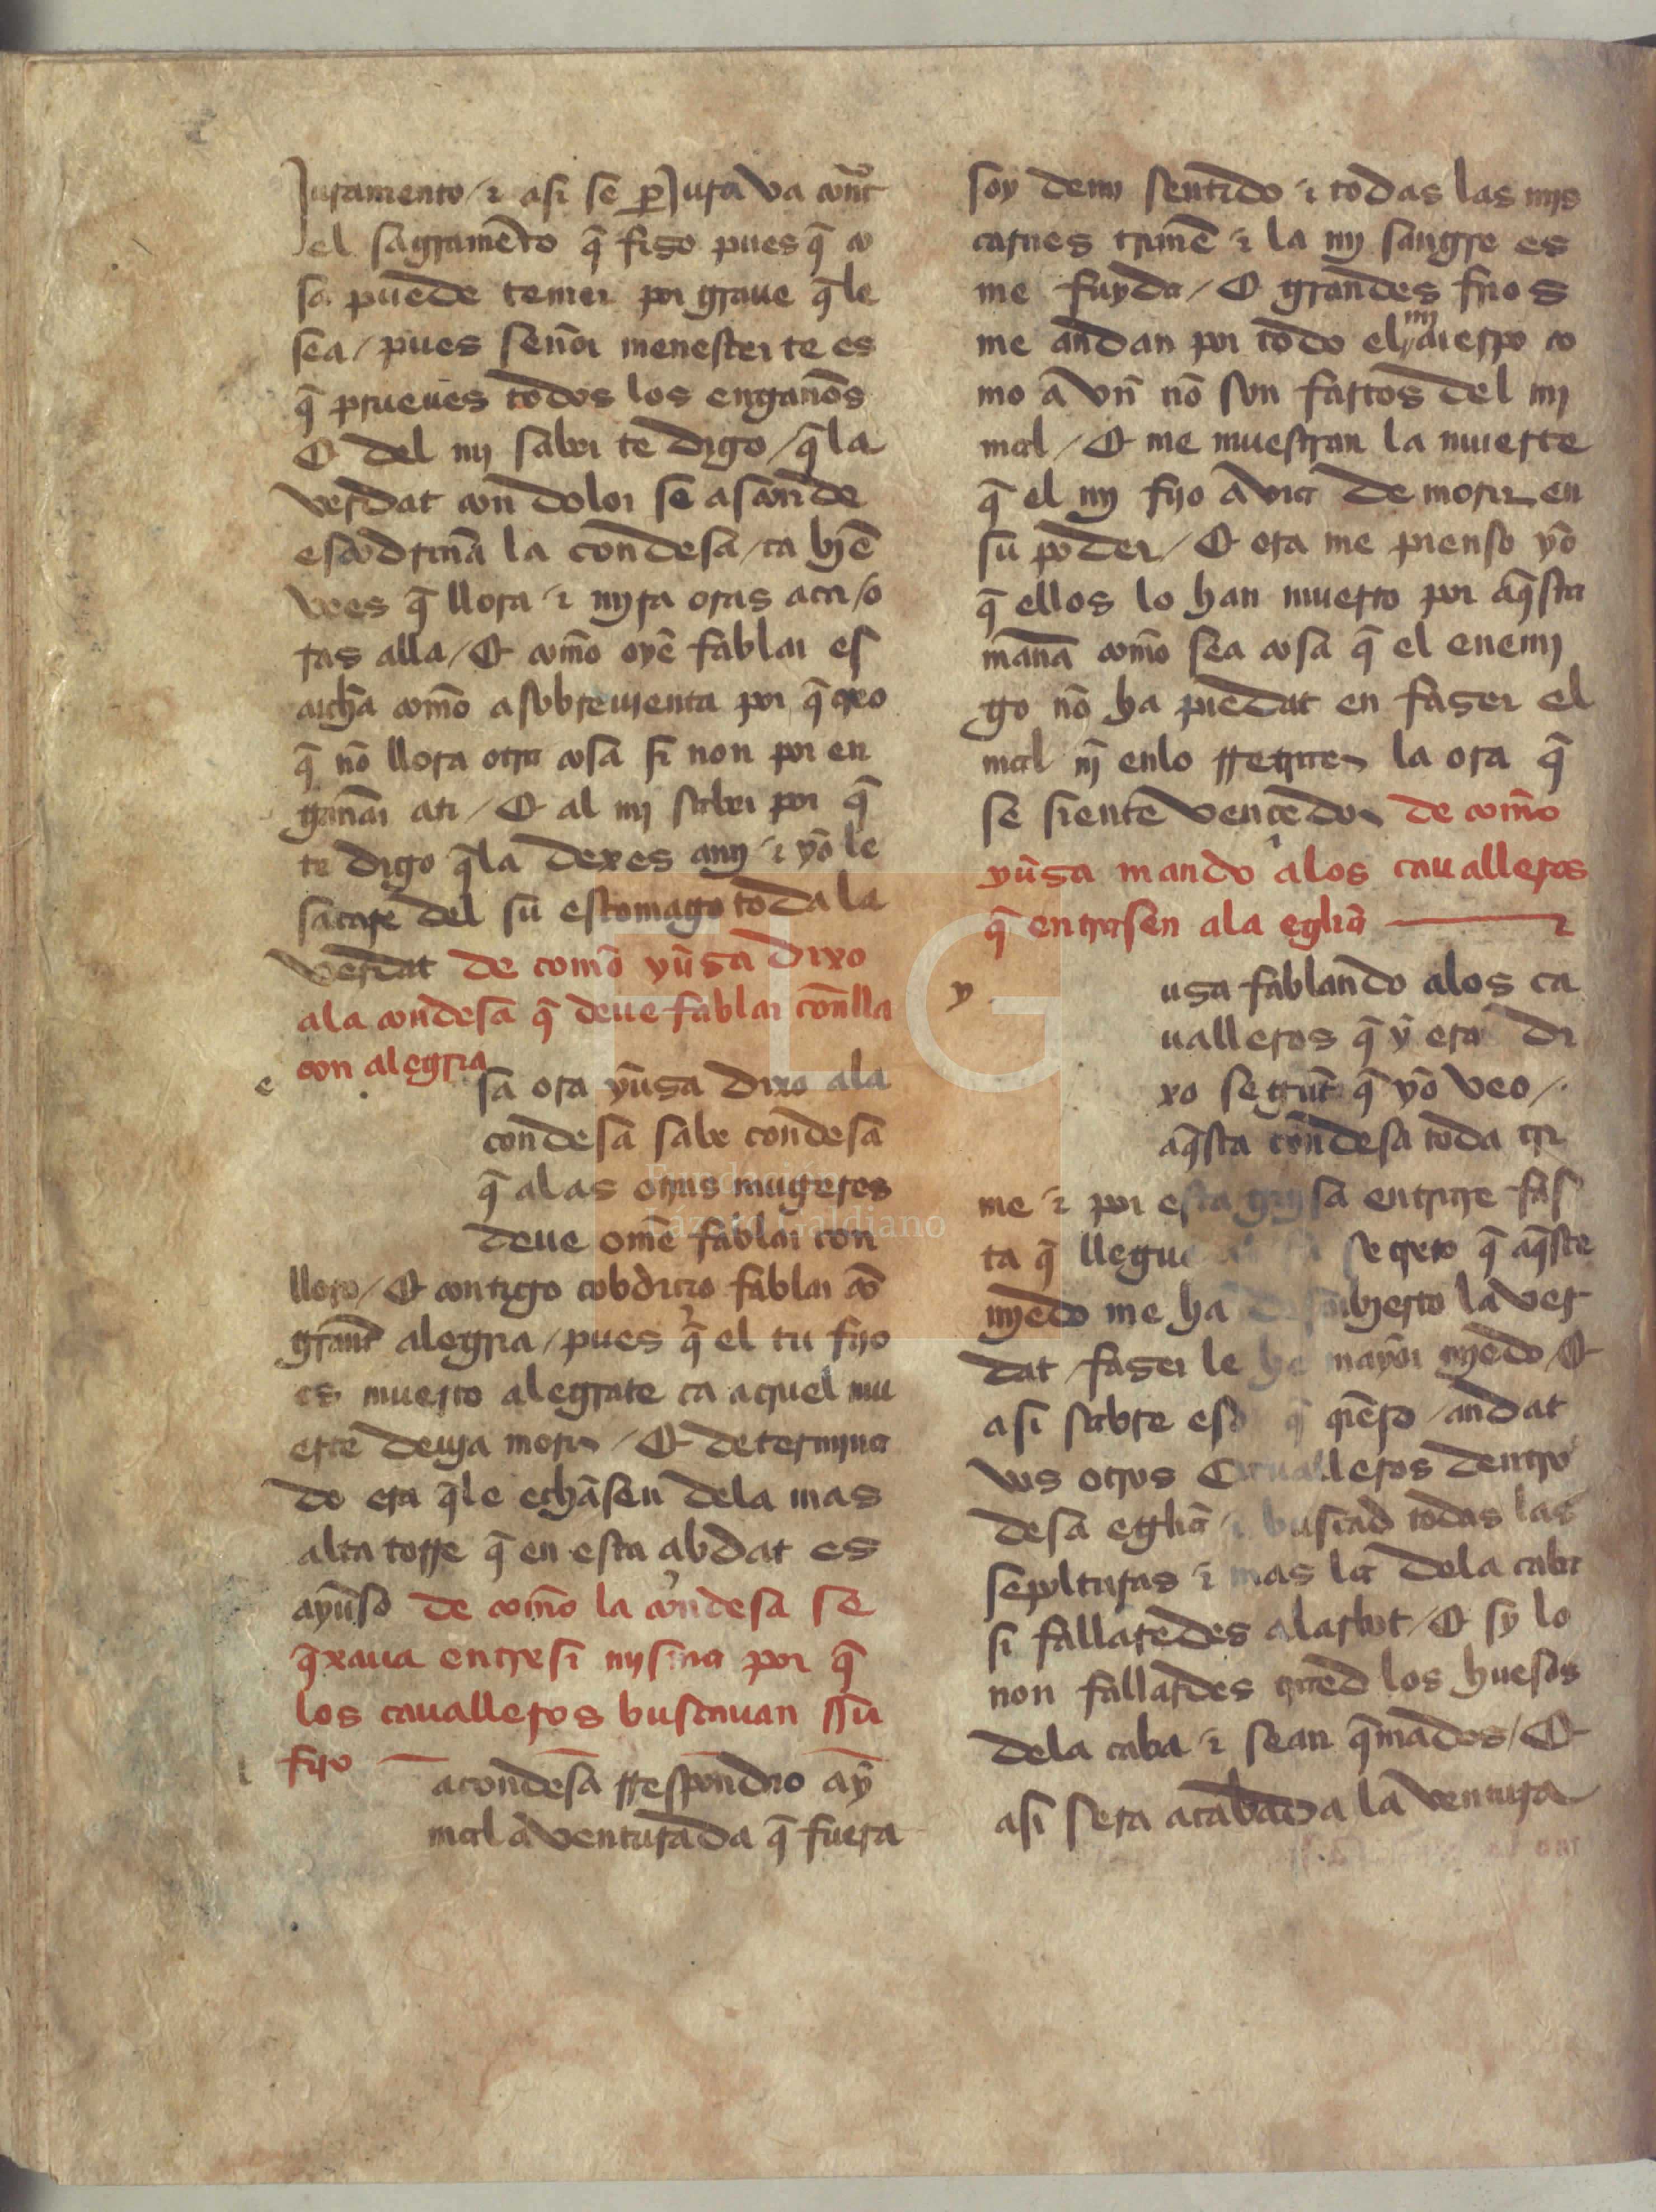 Juramento / ⁊ asi se ꝑJura va cont̃
el sagramẽto q̃ fiso pues q̃ co
sa puede temer por graue q̃ le
sea / pues señor menester te es
q̃ prueues todos los engaños
E del mj saber te digo / q̃ la
verdat con dolor se asconde
escodriña la condesa / ca bjẽ
vees q̃ llora ⁊ mjra oras aca / o
ras alla / E como oyẽ fablar es
cucha como a sobreuienta por q̃ creo
q̃ nõ llora otra cosa si non por en
gañar ati / E al mj saber por q̃
te digo q̃ la dexes amj ⁊ yo le
sacare del su estomago toda la
verdat de como yũsa dixo
ala condesa q̃ deue fablar conlla
con alegria
e sa ora yũsa dixo ala
condesa sabe condesa
q̃ alas otras mugeres
deue omẽ fablar con
lloro / E contigo cobdicio fablar cõ
grant alegria / pues q̃ el tu fijo
es muerto alegrate ca aquel mu
erte deuja morir / E determjna
do era q̃ le echasen dela mas
alta torre q̃ en esta abdat es
ayũso de como la condesa se
q̃xaua entresi mjsma por q̃
los caualleros buscauan ssu
fijo
l acondesa rrespondio aỹ
mal aventurada q̃ fuera
soy demj sentido ⁊ todas las mjs
carnes tremẽ ⁊ la mj sangre es
me fuyda / E grandes frios
me andan por todo el mj cuerpo co
mo a vñ nõ son fartos del mj
mal / E me muestran la muerte
q̃ el mj fijo avia de morir en
su poder / E ora me pienso yo
q̃ ellos lo han muerto por aq̃sta
mañana como sea cosa q̃ el enemj
go nõ ha piedat en faser el
mal nj̃ enlo rretraer la ora q̃
se siente vencedor de como
yũsa mando alos caualleros
q̃ entrasen ala eglia
y usa fablando alos ca
ualleros q̃ ỹ erã di
xo segunt q̃ yo veo /
aq̃sta condesa toda tre
me ⁊ por esta gujsa entrare fas
ta q̃ llegue secreto q̃ aq̃ste
mjedo me ha descubierto la ver
dat faser le he mayor mjedo / E
asi sabre eso q̃ q̃ero / andat
vos otros Caualleros dentro
desa eglia ⁊ buscad todas las
sepolturas ⁊ mas la dela caba
si fallaredes alarbot / E sy lo
non fallardes traed los huesos
dela caba ⁊ sean q̃mados / E
asi sera acabada la ventura
Fundación
Lázaro Galdiano